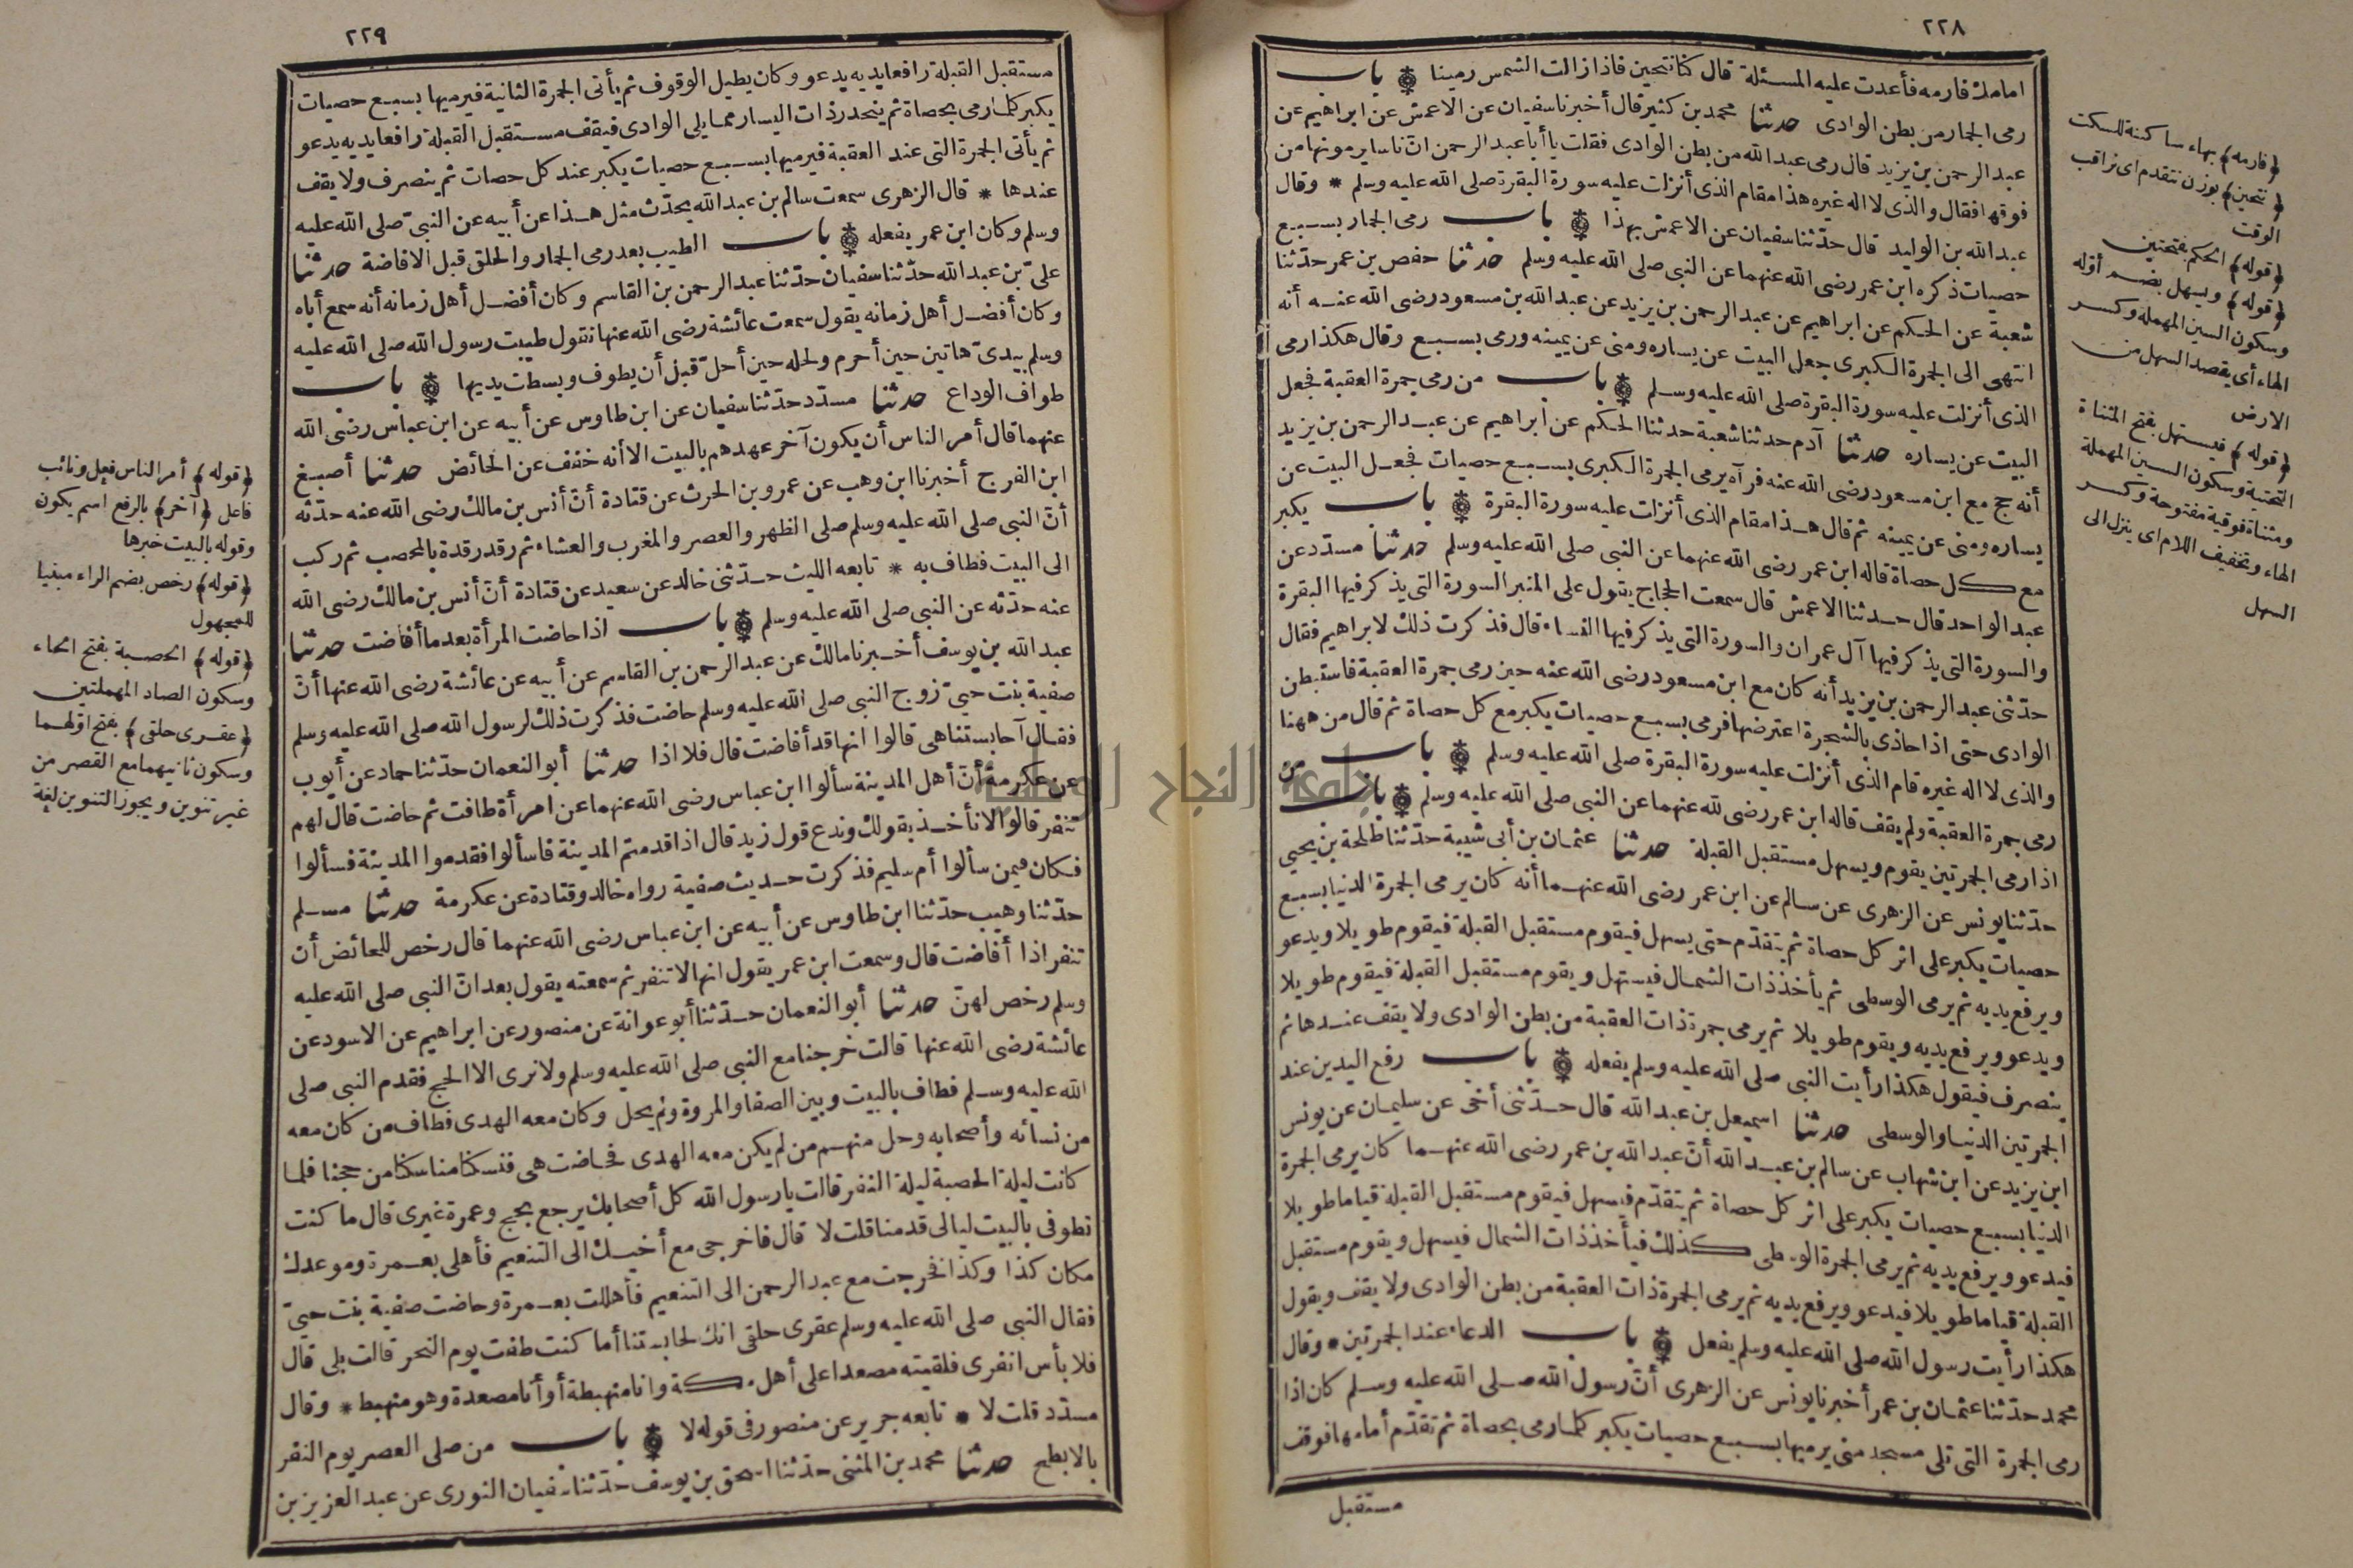 ٢٢٨
امامك فارمه فأعدت عليه المسئلة قال كنا نتحين فاذا زالت الشمس رمينا باب
رمى الجمار من بطن الوادى حدثنا محمد بن كثير قال أخبرنا سفيان عن الاعمش عن ابراهيم عن
عبد الرحمن بن يزيد قال رمى عبد الله من بطن الوادى فقلت يا أبا عبد الرحمن انّ ناسا يرمونها من
فوقها فقال والذى لا اله غيره هذا مقام الذى أنزلت عليه سورة البقرة صلى الله عليه وسلم * وقال
عبد الله بن الوليد قال حدّثنا سفيان عن الاعمش بهذا باب رمى الجمار بسبع
حصيات ذكره ابن عمر رضى الله عنهما عن النبى صلى الله عليه وسلم حدثنا حفص بن عمر حدّثنا
شعبة عن الحكم عن ابراهيم عن عبد الرحمن بن يزيد عن عبد الله بن مسعود رضى الله عنه أنه
انتهى الى الجمرة الكبرى جعل البيت عن يساره ومنى عن يمينه ورمى بسبع وقال هكذا رمى
الذى أنزلت عليه سورة البقرة صلى الله عليه وسلم باب من رمى جمرة العقبة فجعل
البيت عن يساره حدثنا آدم حدثنا شعبة حدثنا الحكم عن ابراهيم عن عبد الرحمن بن يزيد
أنه حج مع ابن مسعود رضى الله عنه فرآه يرمى الجمرة الكبرى بسبع حصيات فجعل البيت عن
يساره ومنى عن يمينه ثم قال هذا مقام الذى أنزلت عليه سورة البقرة باب يكبر
مع كل حصاة قاله ابن عمر رضى الله عنهما عن النبى صلى الله عليه وسلم حدثنا مسدّد عن
عبد الواحد قال حدثنا الاعمش قال سمعت الحجاج يقول على المنبر السورة التى يذكر فيها البقرة
والسورة التى يذكر فيها آل عمران والسورة التى يذكر فيها النساء قال فذكرت ذلك لابراهيم فقال
حدّثنى عبد الرحمن بن يزيد أنه كان مع ابن مسعود رضى الله عنه حين رمى جمرة العقبة فاستبطن
الوادى حتى اذا حاذى بالشجرة اعترضها فرمى بسبع حصيات يكبر مع كل حصاة ثم قال من ههنا
والذى لا اله غيره قام الذى أنزلت عليه سورة البقرة صلى الله عليه وسلم باب من
رمى جمرة العقبة ولم يقف قاله ابن عمر رضى لله عنهما عن النبى صلى الله عليه وسلم باب
اذا رمى الجمرتين يقوم ويسهل مستقبل القبلة حدثنا عثمان بن أبى شيبة حدّثنا طلحة بن يحيى
حدّثنا يونس عن الزهرى عن سالم عن ابن عمر رضى الله عنهما أنه كان يرمى الجمرة الدنيا بسبع
حصيات يكبر على اثر كل حصاة ثم يتقدّم حتى يسهل فيقوم مستقبل القبلة فيقوم طويلا ويدعو
ويرفع يديه ثم يرمى الوسطى ثم يأخذ ذات الشمال فيستهل ويقوم مستقبل القبلة فيقوم طويلا
ويدعو ويرفع يديه ويقوم طويلا ثم يرمى جمرة ذات العقبة من بطن الوادى ولا يقف عندها ثم
ينصرف فيقول هكذا رأيت النبى صلى الله عليه وسلم يفعله باب رفع اليدين عند
الجمرتين الدنيا والوسطى حدثنا اسمعيل بن عبد الله قال حدّثنى أخى عن سليمان عن يونس
ابن يزيد عن ابن شهاب عن سالم بن عبد الله أنّ عبد الله بن عمر رضى الله عنهما كان يرمى الجمرة
الدنيا بسبع حصيات يكبر على اثر كل حصاة ثم يتقدّم فيسهل فيقوم مستقبل القبلة قياما طويلا
فيدعو ويرفع يديه ثم يرمى الجمرة الوسطى كذلك فيأخذ ذات الشمال فيسهل ويقوم مستقبل
القبلة قياما طويلا فيدعو ويرفع يديه ثم يرمى الجمرة ذات العقبة من بطن الوادى ولا يقف ويقول
هكذا رأيت رسول الله صلى الله عليه وسلم يفعل باب الدعاء عند الجمرتين * وقال
محمد حدّثنا عثمان بن عمر أخبرنا يونس عن الزهرى أنّ رسول الله صلى الله عليه وسلم كان اذا
رمى الجمرة التى تلى مسجد منى يرميها بسبع حصيات يكبر كلما رمى بحصاة ثم تقدّم أمامها فوقف
مستقبل
﴿فارمه﴾ بهاء ساكنة للسكت
﴿نتحين﴾ بوزن نتقدم اى نراقب
الوقت
﴿قوله﴾ الحكم بفتحتين
﴿قوله﴾ ويسهل بضم أوّله
وسكون السين المهملة وكسر
الهاء أى يقصد السهل من
الارض
﴿قوله﴾ فيستهل بفتح المثناة
التحتية وسكون السين المهملة
ومثناة فوقية مفتوحة وكسر
الهاء وتخفيف اللام اى ينزل الى
السهل
٢٢٩
مستقبل القبلة رافعا يديه يدعو وكان يطيل الوقوف ثم يأتى الجمرة الثانية فيرميها بسبع حصيات
يكبر كلما رمى بحصاة ثم ينحدر ذات اليسار مما يلى الوادى فيقف مستقبل القبلة رافعا يديه يدعو
ثم يأتى الجمرة التى عند العقبة فيرميها بسبع حصيات يكبر عند كل حصات ثم ينصرف ولا يقف
عندها * قال الزهرى سمعت سالم بن عبد الله يحدّث مثل هذا عن أبيه عن النبىّ صلى الله عليه
وسلم وكان ابن عمر يفعله باب الطيب بعد رمى الجمار والحلق قبل الافاضة حدثنا
علىّ بن عبد الله حدّثنا سفيان حدّثنا عبد الرحمن بن القاسم وكان أفضل أهل زمانه أنه سمع أباه
وكان أفضل أهل زمانه يقول سمعت عائشة رضى الله عنها تقول طيبت رسول الله صلى الله عليه
وسلم بيدىّ هاتين حين أحرم ولحله حين أحلّ قبل أن يطوف وبسطت يديها باب
طواف الوداع حدثنا مسدّد حدّثنا سفيان عن ابن طاوس عن أبيه عن ابن عباس رضى الله
عنهما قال أمر الناس أن يكون آخر عهدهم بالبيت الا أنه خفف عن الحائض حدثنا أصبغ
ابن الفرج أخبرنا ابن وهب عن عمرو بن الحرث عن قتادة أنّ أنس بن مالك رضى الله عنه حدّثه
أنّ النبى صلى الله عليه وسلم صلى الظهر والعصر والمغرب والعشاء ثم رقد رقدة بالمحصب ثم ركب
الى البيت فطاف به * تابعه الليث حدّثنى خالد عن سعيد عن قتادة أنّ أنس بن مالك رضى الله
عنه حدّثه عن النبى صلى الله عليه وسلم باب اذا حاضت المرأة بعد ما أفاضت حدثنا
عبد الله بن يوسف أخبرنا مالك عن عبد الرحمن بن القاسم عن أبيه عن عائشة رضى الله عنها أنّ
صفية بنت حيىّ زوج النبى صلى الله عليه وسلم حاضت فذكرت ذلك لرسول الله صلى الله عليه وسلم
فقال آحابستنا هى قالوا انها قد أفاضت قال فلا اذا حدثنا أبو النعمان حدّثنا حماد عن أيوب
عن عكرمة أنّ أهل المدينة سألوا ابن عباس رضى الله عنهما عن امرأة طافت ثم حاضت قال لهم
تنفر قالوا لا نأخذ بقولك وندع قول زيد قال اذا قدمتم المدينة فاسألوا فقدموا المدينة فسألوا
فكان فيمن سألوا أم سليم فذكرت حديث صفية رواه خالد وقتادة عن عكرمة حدثنا مسلم
حدّثنا وهيب حدّثنا ابن طاوس عن أبيه عن ابن عباس رضى الله عنهما قال رخص للحائض أن
تنفر اذا أفاضت قال وسمعت ابن عمر يقول انها لا تنفر ثم سمعته يقول بعد انّ النبى صلى الله عليه
وسلم رخص لهنّ حدثنا أبو النعمان حدّثنا أبو عوانة عن منصور عن ابراهيم عن الاسود عن
عائشة رضى الله عنها قالت خرجنا مع النبى صلى الله عليه وسلم ولا نرى الا الحج فقدم النبى صلى
الله عليه وسلم فطاف بالبيت وبين الصفا والمروة ولم يحل وكان معه الهدى فطاف من كان معه
من نسائه وأصحابه وحل منهم من لم يكن معه الهدى فحاضت هى فنسكنا مناسكنا من حجنا فلما
كانت ليلة الحصبة ليلة النفر قالت يا رسول الله كل أصحابك يرجع بحج وعمرة غيرى قال ما كنت
تطوفى بالبيت ليالى قدمنا قلت لا قال فاخرجى مع أخيك الى التنعيم فأهلى بعمرة وموعدك
مكان كذا وكذا فخرجت مع عبد الرحمن الى التنعيم فأهللت بعمرة وحاضت صفية بنت حيىّ
فقال النبى صلى الله عليه وسلم عقرى حلقى انك لحابستنا أما كنت طفت يوم النحر قالت بلى قال
فلا بأس انفرى فلقيته مصعدا على أهل مكة وانا منهبطة أو أنا مصعدة وهو منهبط * وقال
مسدّد قلت لا * تابعه جرير عن منصور فى قوله لا باب من صلى العصر يوم النفر
بالابطح حدثنا محمد بن المثنى حدّثنا اسحق بن يوسف حدّثنا سفيان الثورى عن عبد العزيز بن
﴿قوله﴾ أمر الناس فعل ونائب
فاعل ﴿آخر﴾ بالرفع اسم يكون
وقوله بالبيت خبرها
﴿قوله﴾ رخص بضم الراء مبنيا
للمجهول
﴿قوله﴾ الحصبة بفتح الحاء
وسكون الصاد المهملتين
﴿عقرى حلقى﴾ بفتح اوّلهما
وسكون ثانيهما مع القصر من
غير تنوين ويجوز التنوين لغة
جامعة النجاح الوطنية